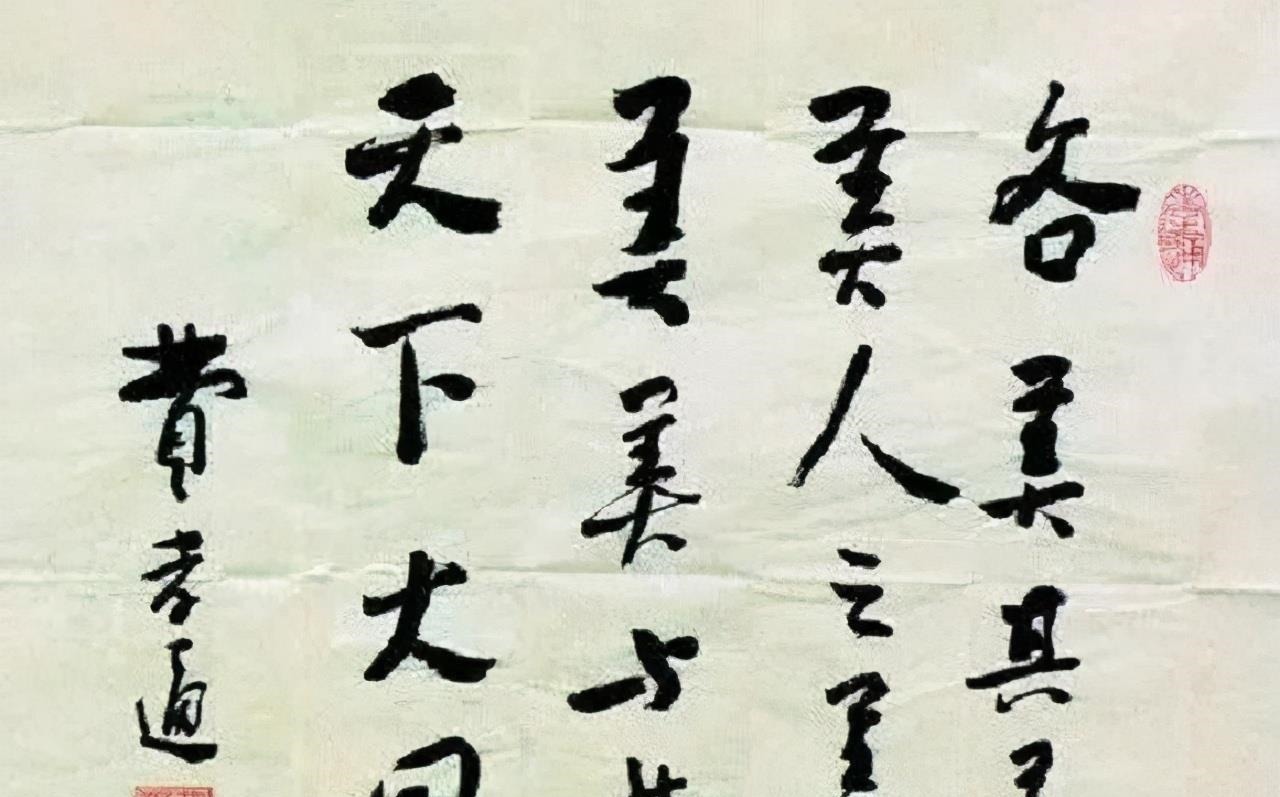 各美其美
美人之美
美美与
天下大同
費孝通